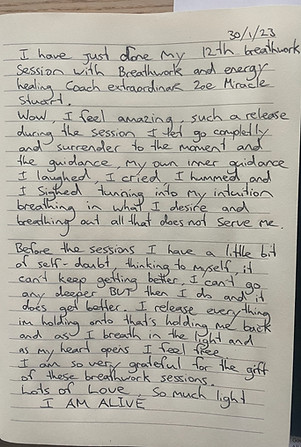 30/1/23
I have just done my 12th breathwork
Session with Breathwork and energy
healing Coach extraordinair Zoe Miracle
Stuart.
Wow, I feel amazing, such a release
during the session I let go completly
and surrender to the moment and
the guidance, my own inner guidance
I laughed, I cried, I hummed and
I Sighed tunning into my intuition
breathing in what I desire and
breathing out all that does not serve me.
Before the sessions I have a little bit
of self-doubt, thinking to myself, it
can't keep getting better, I can't go
any deeper BUT then I do and it
does get better. I release everything
im holding onto that's holding me back
and as I breath in the light and
as my heart opens I feel free
I am so very grateful for the gift
of these breathwork sessions.
Lots of Love, So much light
I AM ALIVE